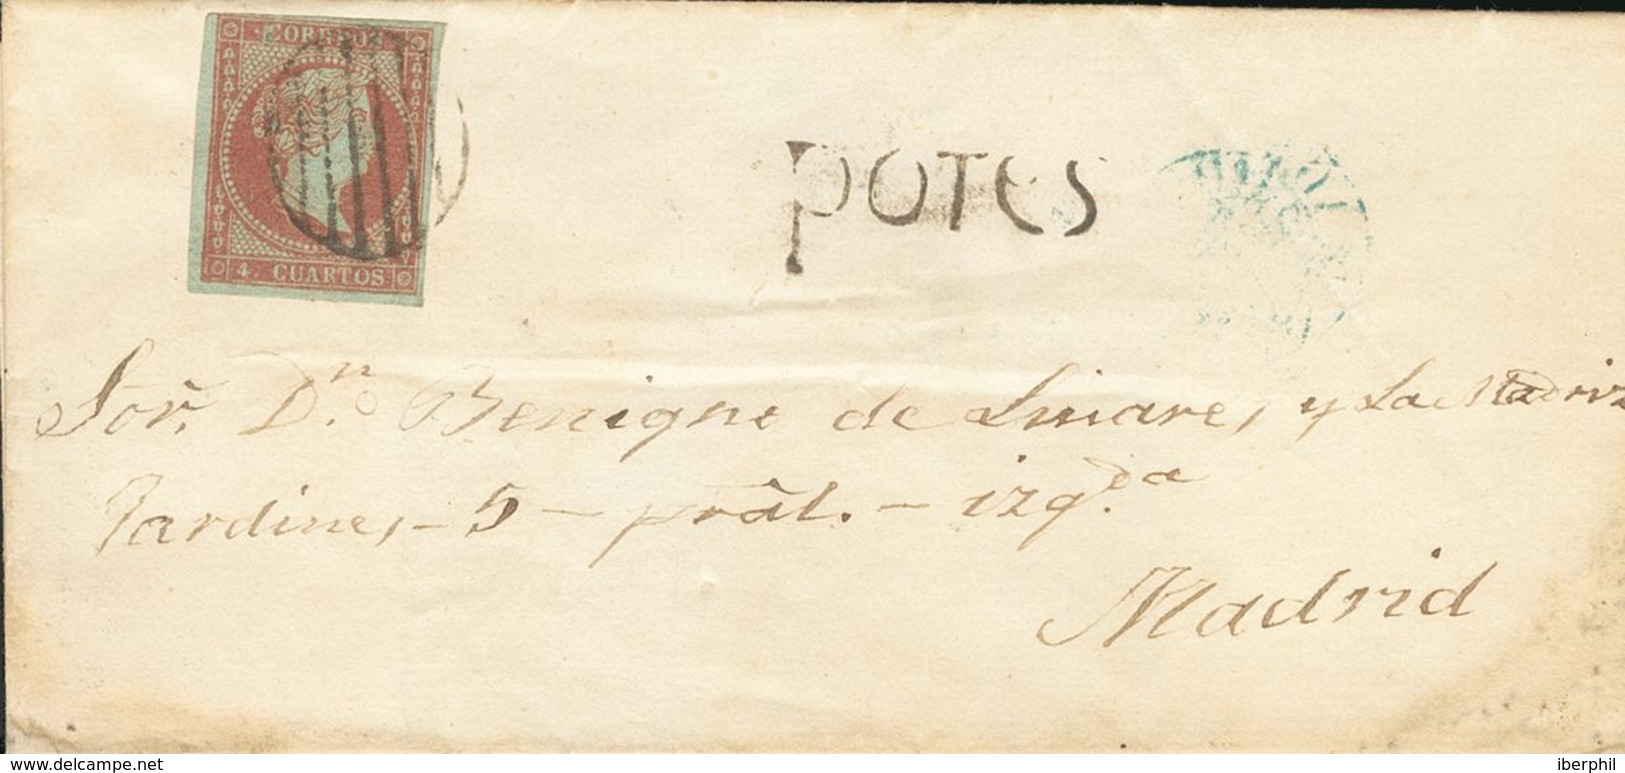 CORREOS
4. CUARTOS
POTES
Sor. Dn. Benigno de Linares y La Madriz
Jardines - 5 - pràl. - izqda.
Madrid
delcampe.net
iberphil